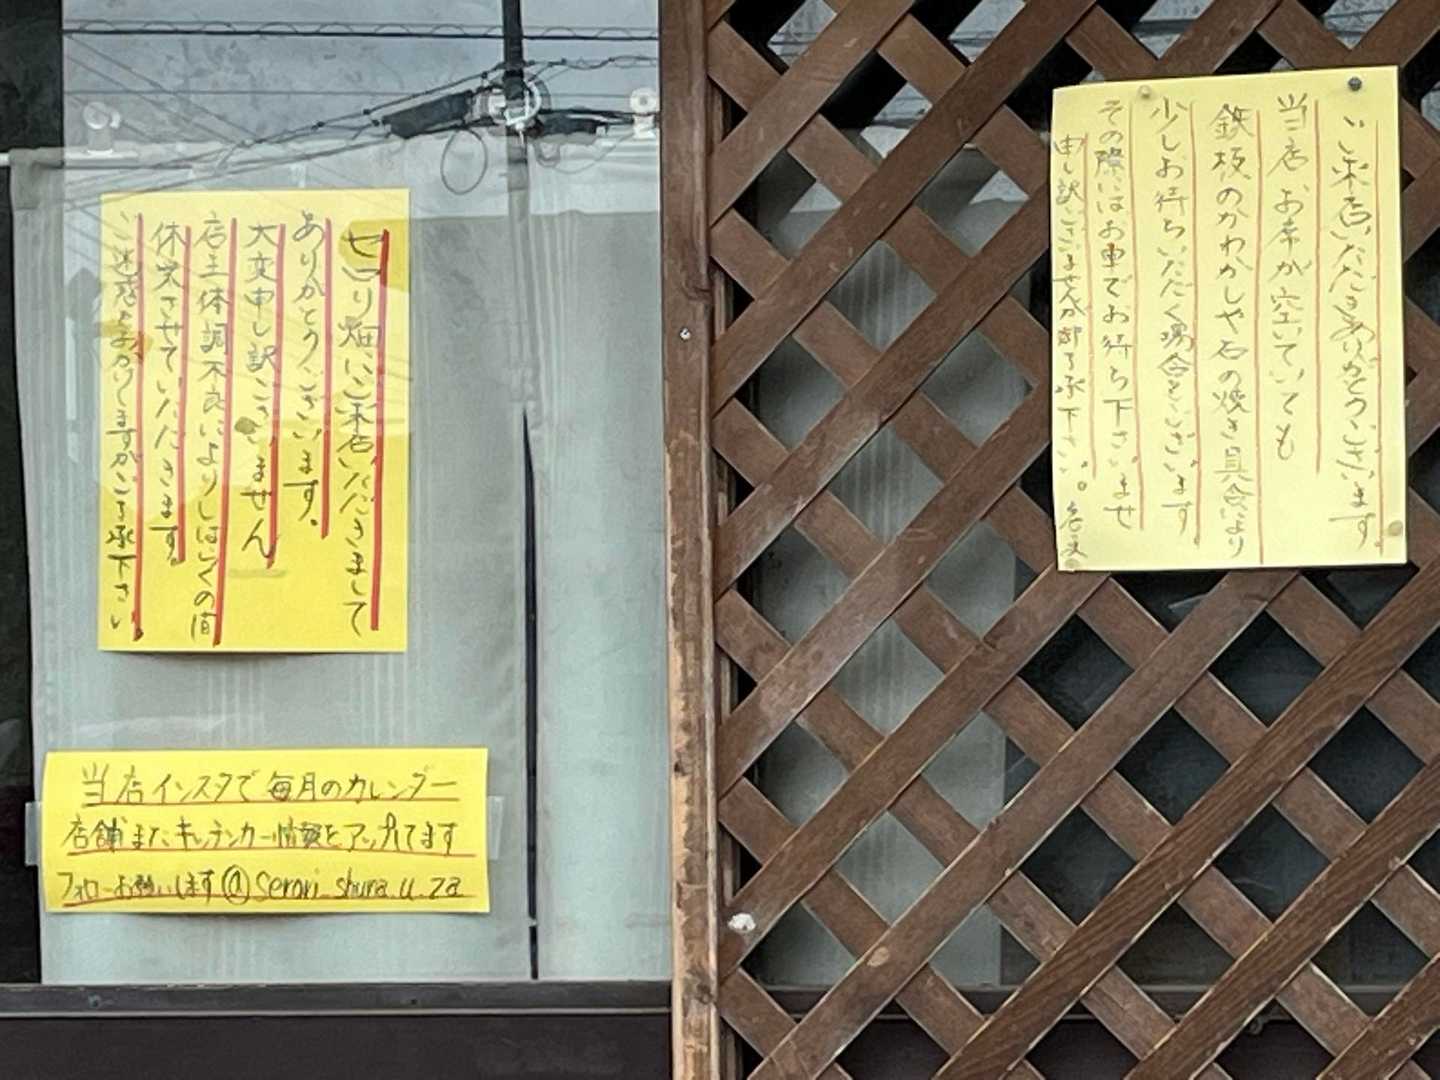 セロリ畑にご来店いただきまして
ありがとうございます。
大変申し訳ございません
店主体調不良によりしばらくの間
休業させていただきます。
ご迷惑をおかけしますがご了承下さい
当店インスタで毎月のカレンダー
店舗またキッチンカー情報をアップしてます
フォローお願いします@serori_shura.u_za
ご来店いただきありがとうございます。
当店お席が空いていても
鉄板のかわかしや石の焼き具合により
少しお待ちいただく場合もございます
その際にはお車でお待ち下さいませ
申し訳ございませんが御了承下さい。